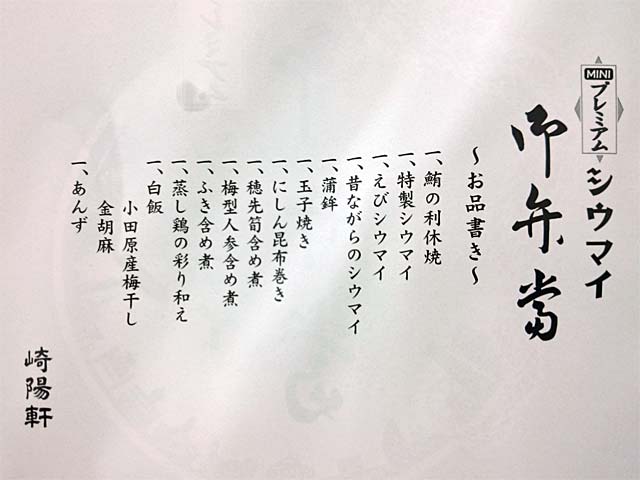 MINI
プレミアム
シウマイ
御弁當
～お品書き～
一、鮪の利休焼
一、特製シウマイ
一、えびシウマイ
一、昔ながらのシウマイ
一、蒲鉾
一、玉子焼き
一、にしん昆布巻き
一、穂先筍含め煮
一、梅型人参含め煮
一、ふき含め煮
一、蒸し鶏の彩り和え
一、白飯
小田原産梅干し
金胡麻
一、あんず
崎陽軒